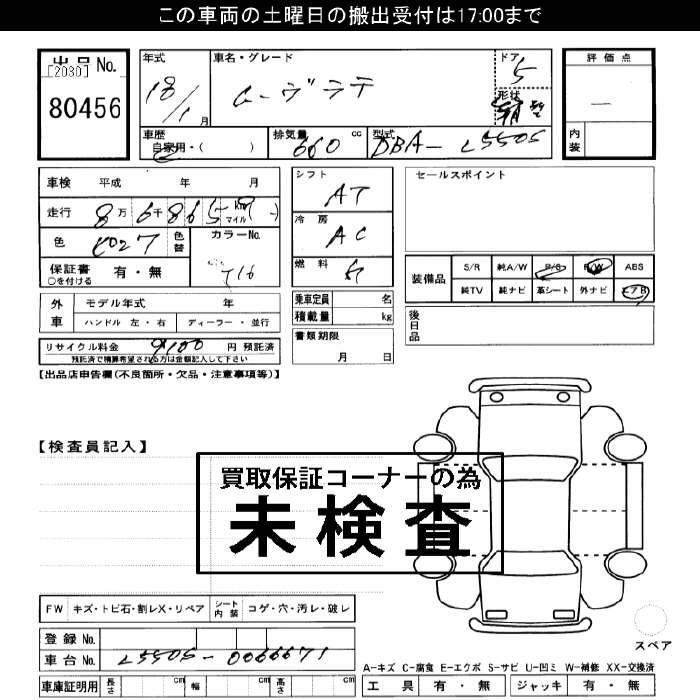 この車両の土曜日の搬出受付は17:00まで
出品No.
[2030]
80456
年式
18/1月
車名・グレード
ムーヴラテ
ドア
5
形状
評価点
内装
車歴
自家用・( )
排気量
660cc
型式
DBA-L550S
車検 平成 年 月
走行 8万6千865 km マイル
色
色替
カラーNo.
T16
保証書
○を付ける
有・無
シフト
AT
冷房
AC
燃料
セールスポイント
装備品
S/R 純A/W P/S P/W ABS
純TV 純ナビ 革シート 外ナビ エアB
外車
モデル年式 年
ハンドル 左・右 ディーラー・並行
乗車定員 名
積載量 kg
後日品
リサイクル料金 9100 円 預託済
預託済で精算希望される方は金額記入して下さい
書類期限
月 日
【出品店申告欄(不良箇所・欠品・注意事項等)】
【検査員記入】
買取保証コーナーの為
未検査
FW キズ・トビ石・割レX・リペア シート内装 コゲ・穴・汚レ・破レ
登録No.
車台No. L550S-0066671
車庫証明用 長さ cm 幅 cm 高さ cm
スペア
A-キズ C-腐食 E-エクボ S-サビ U-凹ミ W-補修 XX-交換済
工具 有・無 ジャッキ 有・無